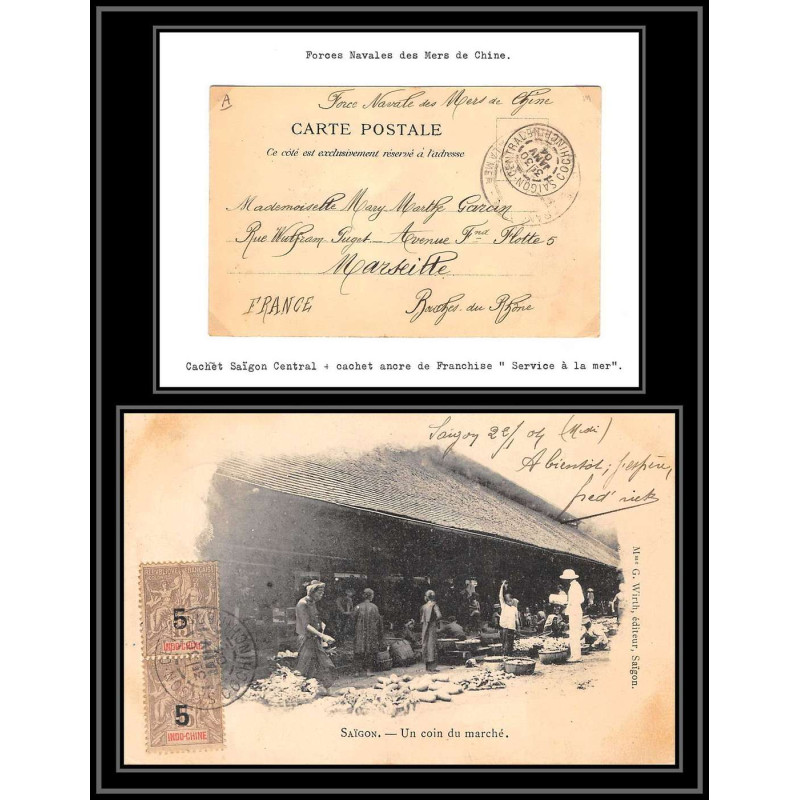 Forces Navales des Mers de Chine.
A
Force Navale des Mers de Chine
CARTE POSTALE
Ce côté est exclusivement réservé à l'adresse
SAIGON-CENTRAL COCHINCHINE
JANV
04
Mademoiselle Mary Marthe Garcin
Rue Wulfram Puget - Avenue Fnd Flotte 5
Marseille
FRANCE
Bouches du Rhône
Cachet Saïgon Central + cachet ancre de Franchise " Service à la mer".
Saigon 22/1 04 (Midi)
A bientôt, j'espère,
fred'rick
REPUBLIQUE FRANÇAISE
5
INDO-CHINE
5
INDO-CHINE
Mme G. Wirth, éditeur, Saïgon.
SAÏGON. — Un coin du marché.